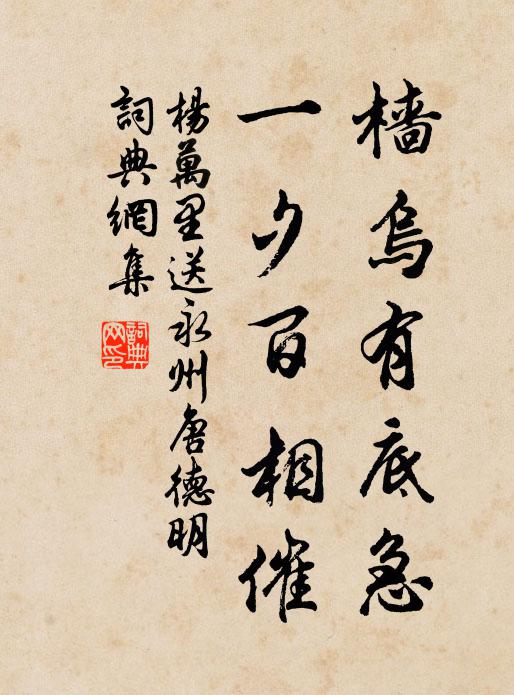 檣烏有底急
一夕百相催
楊萬里送永州唐德明
詞典網集
詞典網印